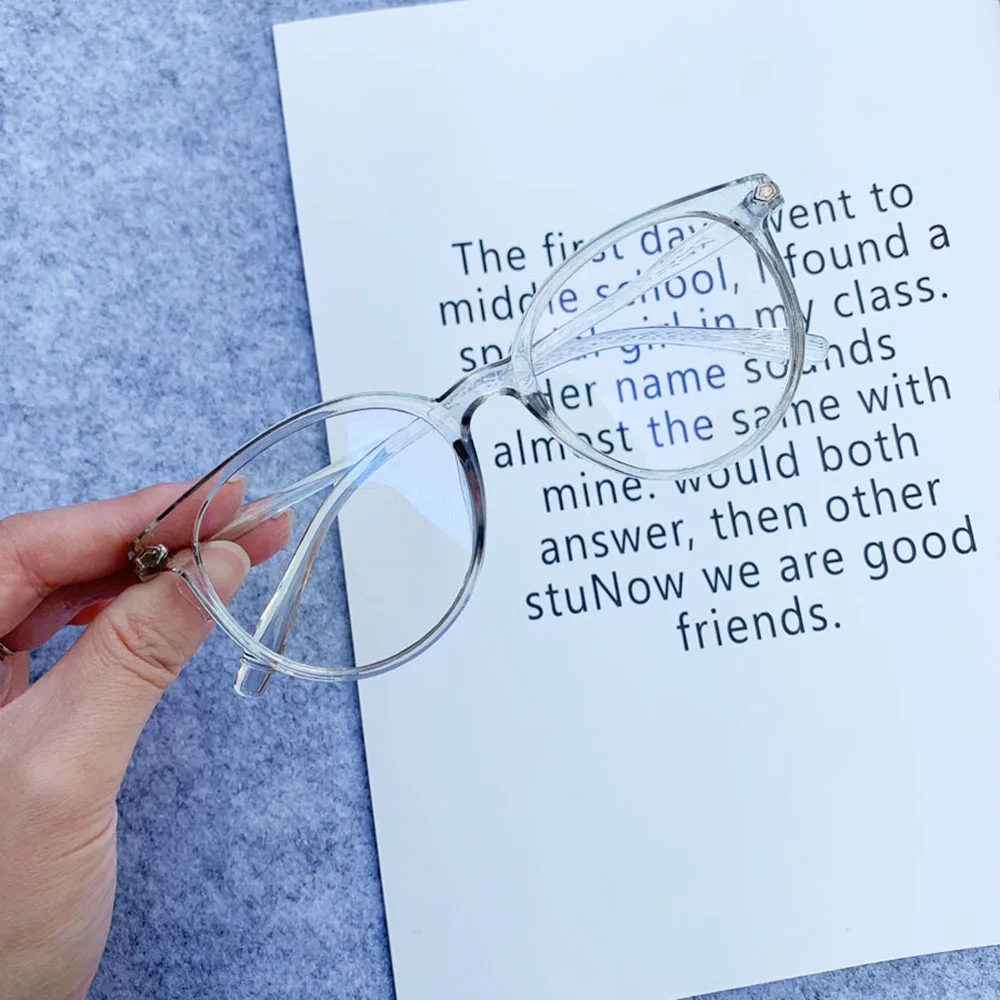 The first day I went to
middle school, I found a
special girl in my class.
Her name sounds
almost the same with
mine. would both
answer, then other
stuNow we are good
friends.